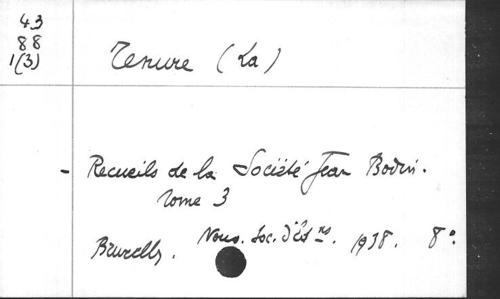 43
88
1(3)
Tenure (La)
- Recueils de la Société Jean Bodin.
Tome 3
Bruxelles. Nouv. Soc. d'Ed ns. 1938. 8°.